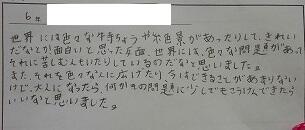 6年
世界には色々な生き方や景色があったりして、きれい
だなとか面白いと思った反面、世界には、色々な問題があって
それに苦しむ人もいたりしているのだなと思いました。
また、それを色々な人に広げたり、今はできることがあまりない
けど、大人になったら、何かその問題に少しでもこうけんできたら
いいなと思いました。